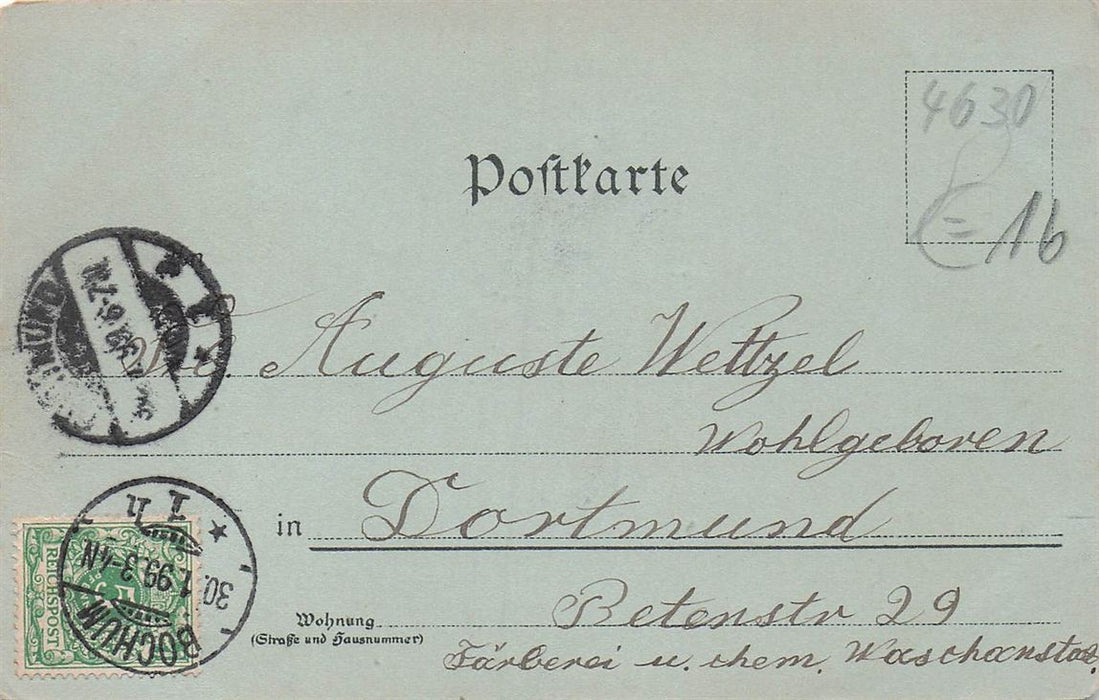 4630
Postkarte
= 16
Auguste Wettzel
Wohlgeboren
in Dortmund
Wohnung
(Straße und Hausnummer)
Betenstr 29
Färberei u. chem. Waschanstalt
DORTMUND
1
REICHSPOST
5
BOCHUM
30.1.99.3-4N
1 n